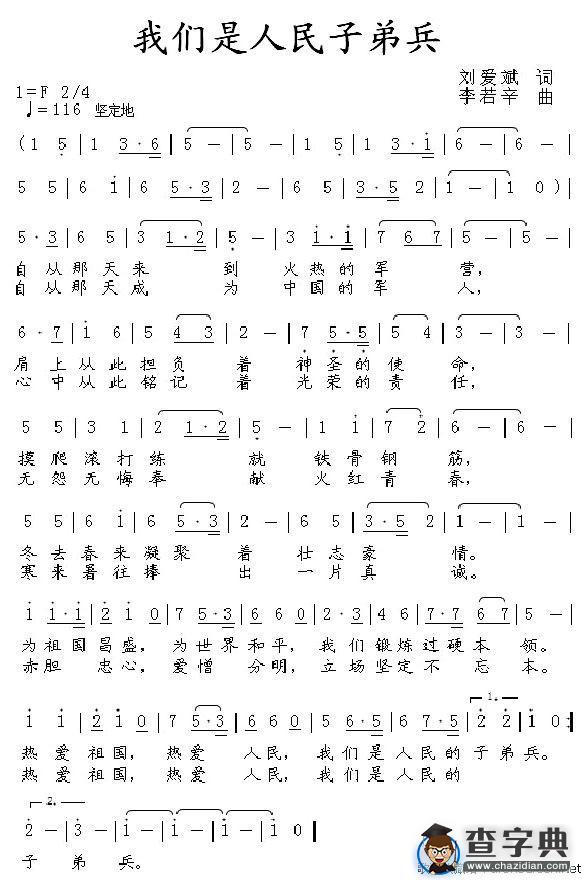 我们是人民子弟兵
1=F 2/4
刘爱斌 词
♩=116 坚定地
李若辛 曲
(1 5|1 3·6|5 -|5 -|1 5|1 3·1|6 -|6 -|
5 5|6 1|6 5·3|2 -|6 5|3·5 2|1 -|1 0)|
5·3|6 5|3 1·2|5 -|3 1·1|7 6 7|5 -|
自从那天来 到 火热的军 营,
自从那天成 为 中国的军 人,
6·7|1 6|5 4 3|2 -|7 5·5|5 4|3 -|
肩上从此担负 着 神圣的使 命,
心中从此铭记 着 光荣的责 任,
5 5|3 1|2 1·2|5 -|1 1|7 2|6 -|6 -|
摸爬滚打练 就 铁骨钢 筋,
无怨无悔奉 献 火红青 春,
5 5|6 1|6 5·3|2 -|6 6|3·5 2|1 -|
冬去春来凝聚 着 壮志豪 情。
寒来暑往捧 出 一片真 诚。
1 1·1|2 1 0|7 5·3|6 6 0|2·3 4 6|7·7 6 7|5 -|
为祖国昌盛, 为世界和平, 我们锻炼过硬本 领。
赤胆 忠心, 爱憎 分明, 立场坚定不 忘 本。
1.
1 1|2 1 0|7 5·3|6 6 0|5 6·5|6 7·5|2 2|1 0:|
热爱祖国, 热爱 人民, 我们是人民的子弟兵。
热爱祖国, 热爱 人民, 我们是人民的
2.
2 -|3 -|1 -|1 -|1 -|1 0‖
子 弟 兵。
查字典
www.chazidian.com